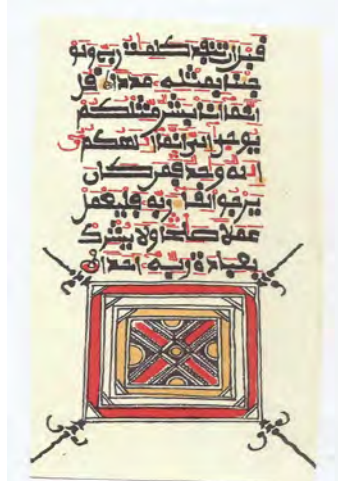 قبل ان تنفد كلمت ربي ولو
جئنا بمثله مددا قل
انما انا بشر مثلكم
يوحى الي انما الهكم
اله وحد فمن كان
يرجوا لقا ربه فليعمل
عملا صلحا ولا يشرك
بعبادة ربه احدا